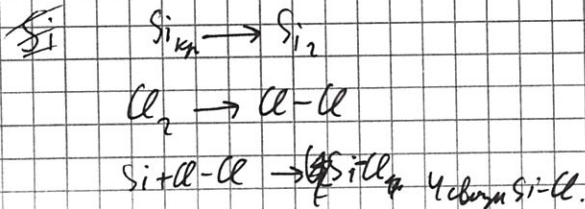 Si кр → Si г
Cl2 → Cl-Cl
Si+Cl-Cl → SiCl 4 связи Si-Cl.